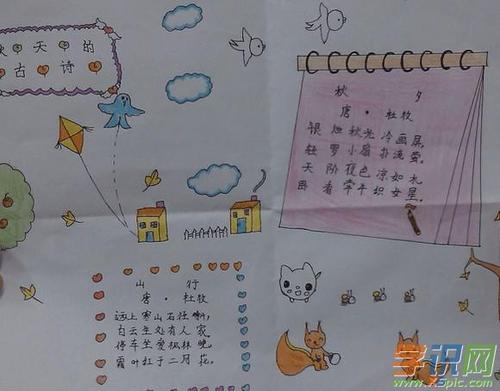 秋天的
古诗
秋 夕
唐·杜牧
银烛秋光冷画屏,
轻罗小扇扑流萤。
天阶夜色凉如水
卧看牵牛织女星。
山 行
唐·杜牧
远上寒山石径斜,
白云生处有人家。
停车坐爱枫林晚,
霜叶红于二月花。
学识网
www.x5pic.com